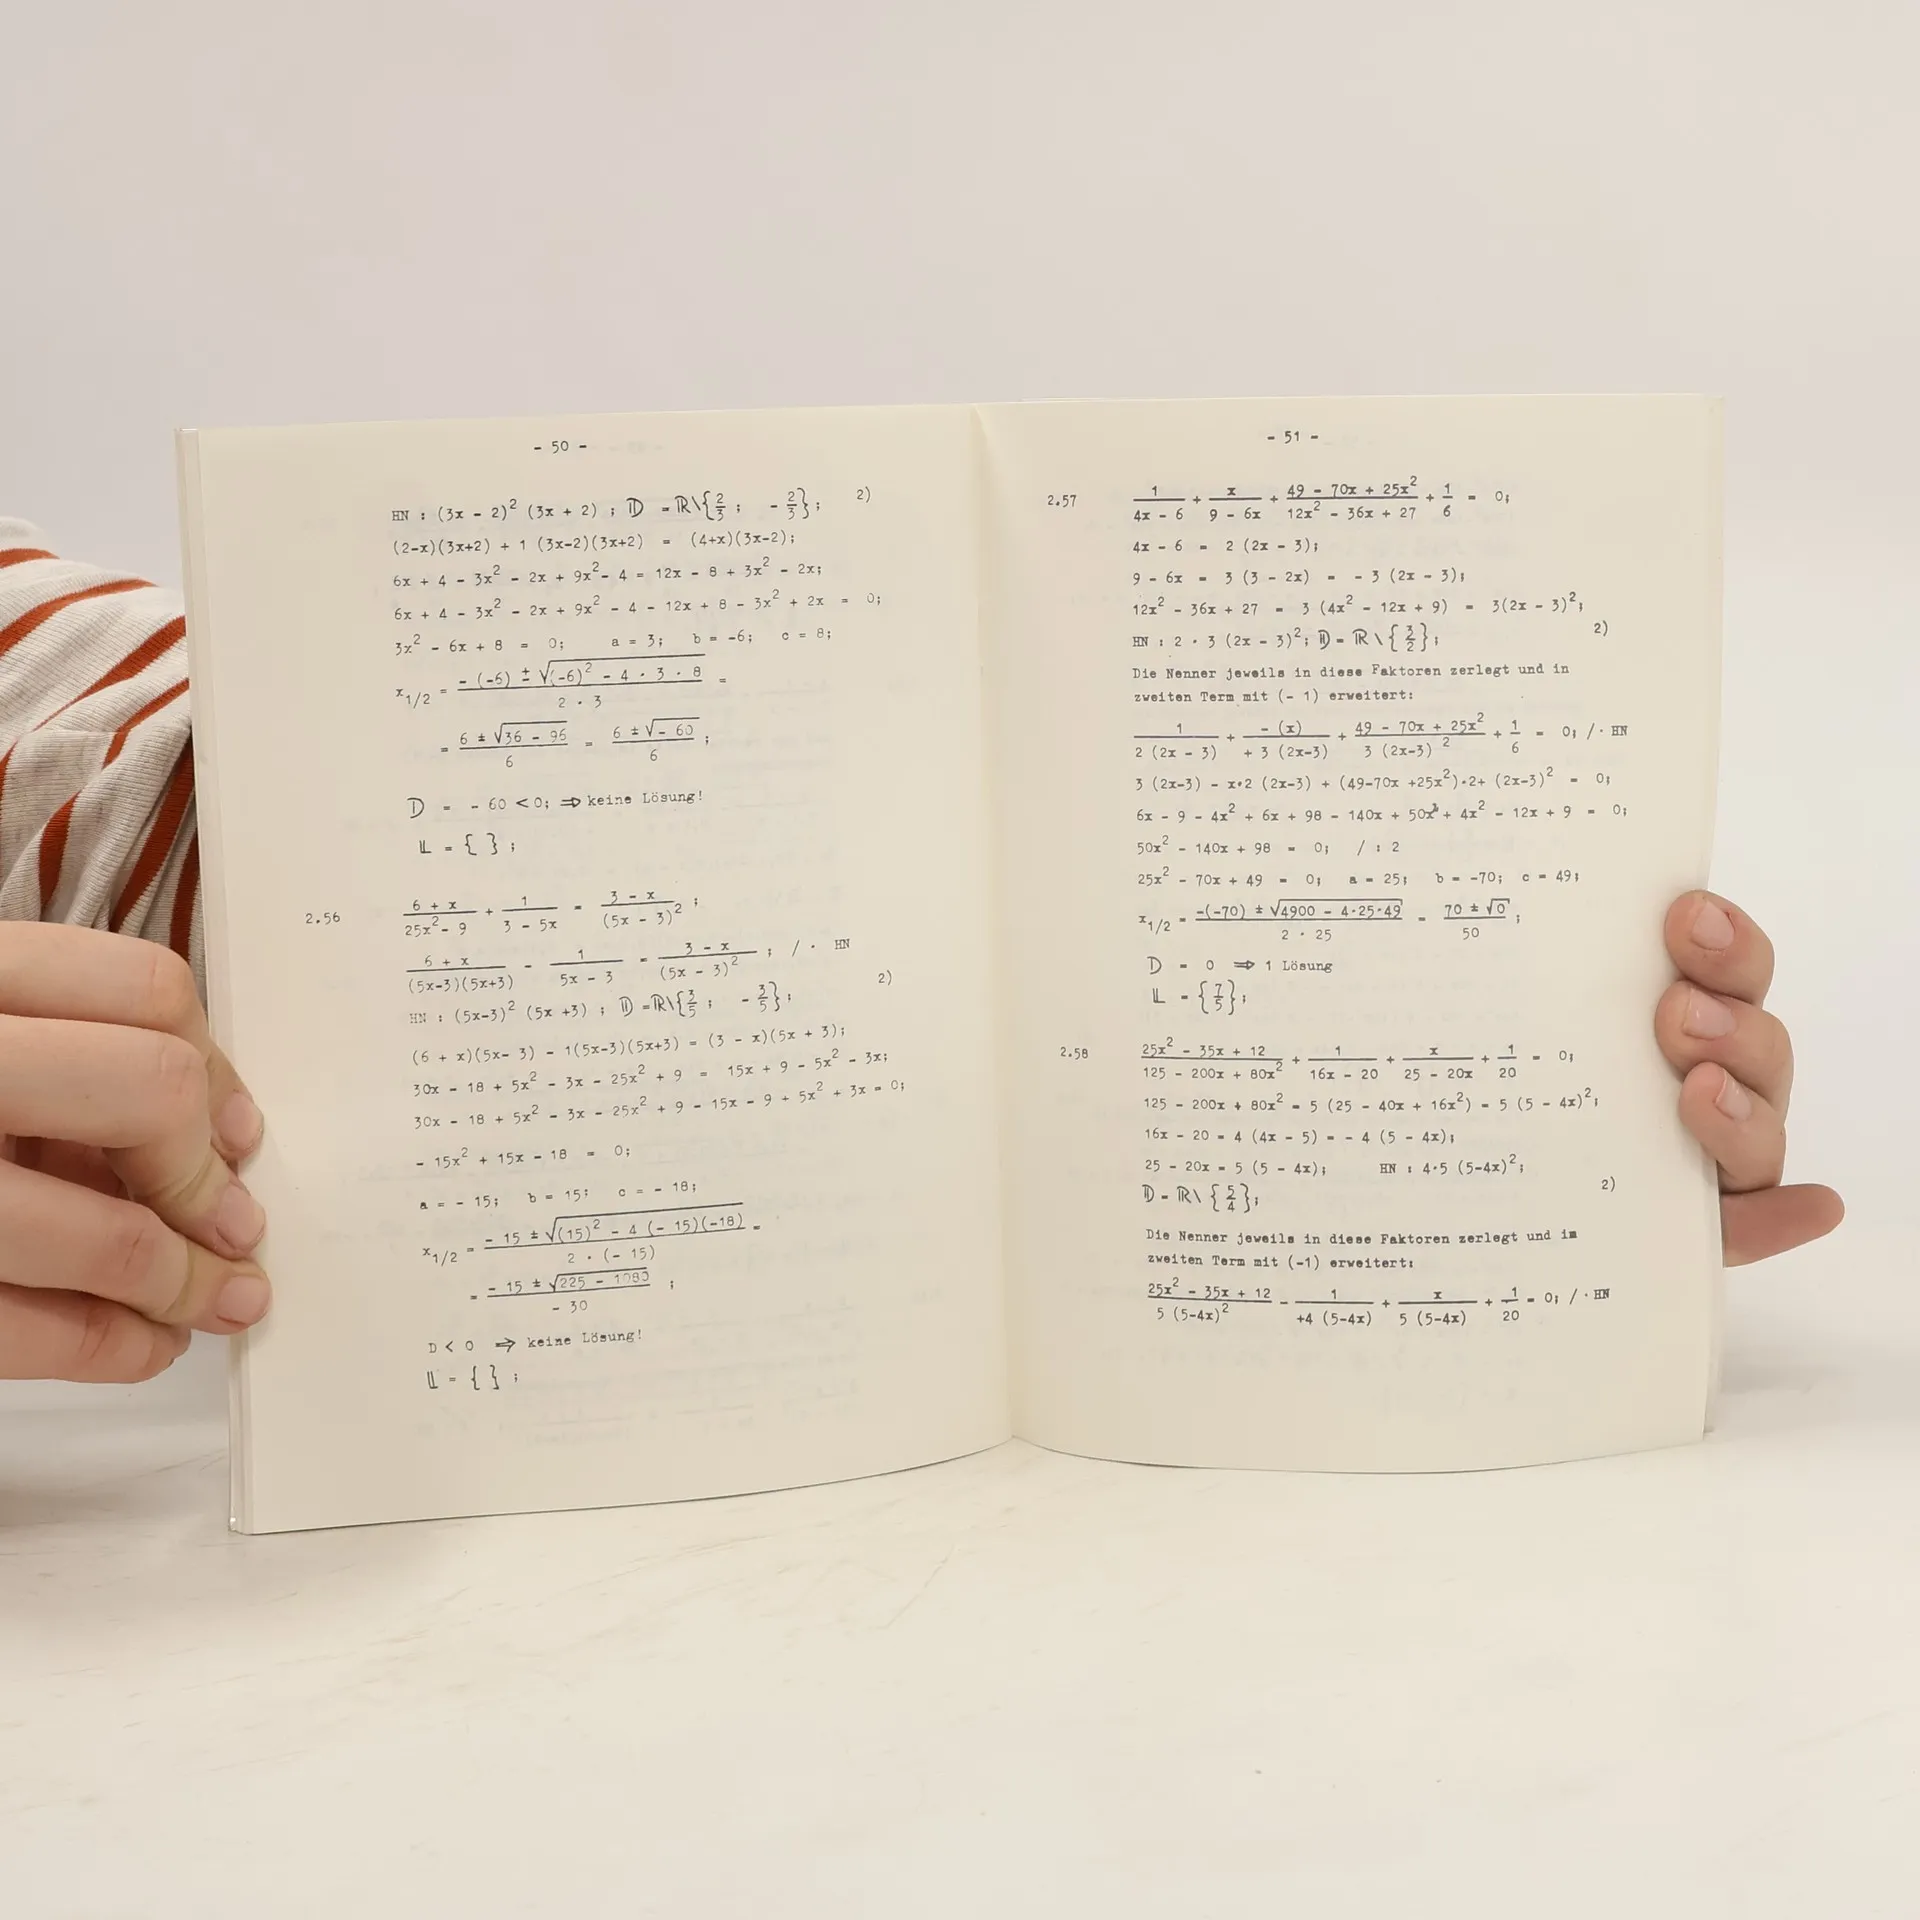 - 50 -
HN : (3x - 2)² (3x + 2) ; 𝔻 = ℝ\{2/3 ; - 2/3}; 2)
(2-x)(3x+2) + 1 (3x-2)(3x+2) = (4+x)(3x-2);
6x + 4 - 3x² - 2x + 9x² - 4 = 12x - 8 + 3x² - 2x;
6x + 4 - 3x² - 2x + 9x² - 4 - 12x + 8 - 3x² + 2x = 0;
3x² - 6x + 8 = 0; a = 3; b = -6; c = 8;
x1/2 = (- (-6) ± √((-6)² - 4 · 3 · 8)) / (2 · 3) =
= (6 ± √(36 - 96)) / 6 = (6 ± √(- 60)) / 6 ;
D = - 60 < 0; ⇒ keine Lösung!
𝕃 = { } ;
2.56 (6 + x)/(25x² - 9) + 1/(3 - 5x) = (3 - x)/(5x - 3)² ;
(6 + x)/((5x-3)(5x+3)) - 1/(5x - 3) = (3 - x)/(5x - 3)² ; / · HN
HN : (5x-3)² (5x +3) ; 𝔻 = ℝ\{3/5 ; - 3/5}; 2)
(6 + x)(5x- 3) - 1(5x-3)(5x+3) = (3 - x)(5x + 3);
30x - 18 + 5x² - 3x - 25x² + 9 = 15x + 9 - 5x² - 3x;
30x - 18 + 5x² - 3x - 25x² + 9 - 15x - 9 + 5x² + 3x = 0;
- 15x² + 15x - 18 = 0;
a = - 15; b = 15; c = - 18;
x1/2 = (- 15 ± √((15)² - 4 (- 15)(-18))) / (2 · (- 15)) =
= (- 15 ± √(225 - 1080)) / (- 30) ;
D < 0 ⇒ keine Lösung!
𝕃 = { } ;
- 51 -
2.57 1/(4x - 6) + x/(9 - 6x) + (49 - 70x + 25x²)/(12x² - 36x + 27) + 1/6 = 0;
4x - 6 = 2 (2x - 3);
9 - 6x = 3 (3 - 2x) = - 3 (2x - 3);
12x² - 36x + 27 = 3 (4x² - 12x + 9) = 3(2x - 3)²;
HN : 2 · 3 (2x - 3)²; 𝔻 = ℝ \ {3/2}; 2)
Die Nenner jeweils in diese Faktoren zerlegt und in
zweiten Term mit (- 1) erweitert:
1/(2 (2x - 3)) + (- (x))/(+ 3 (2x-3)) + (49 - 70x + 25x²)/(3 (2x-3)²) + 1/6 = 0; / · HN
3 (2x-3) - x·2 (2x-3) + (49-70x +25x²)·2+ (2x-3)² = 0;
6x - 9 - 4x² + 6x + 98 - 140x + 50x² + 4x² - 12x + 9 = 0;
50x² - 140x + 98 = 0; / : 2
25x² - 70x + 49 = 0; a = 25; b = -70; c = 49;
x1/2 = (-(-70) ± √(4900 - 4·25·49)) / (2 · 25) = (70 ± √0) / 50 ;
D = 0 ⇒ 1 Lösung
𝕃 = {7/5};
2.58 (25x² - 35x + 12)/(125 - 200x + 80x²) + 1/(16x - 20) + x/(25 - 20x) + 1/20 = 0;
125 - 200x + 80x² = 5 (25 - 40x + 16x²) = 5 (5 - 4x)²;
16x - 20 = 4 (4x - 5) = - 4 (5 - 4x);
25 - 20x = 5 (5 - 4x); HN : 4·5 (5-4x)²;
𝔻 = ℝ\ {5/4}; 2)
Die Nenner jeweils in diese Faktoren zerlegt und im
zweiten Term mit (-1) erweitert:
(25x² - 35x + 12)/(5 (5-4x)²) - 1/(+4 (5-4x)) + x/(5 (5-4x)) + 1/20 = 0; / · HN